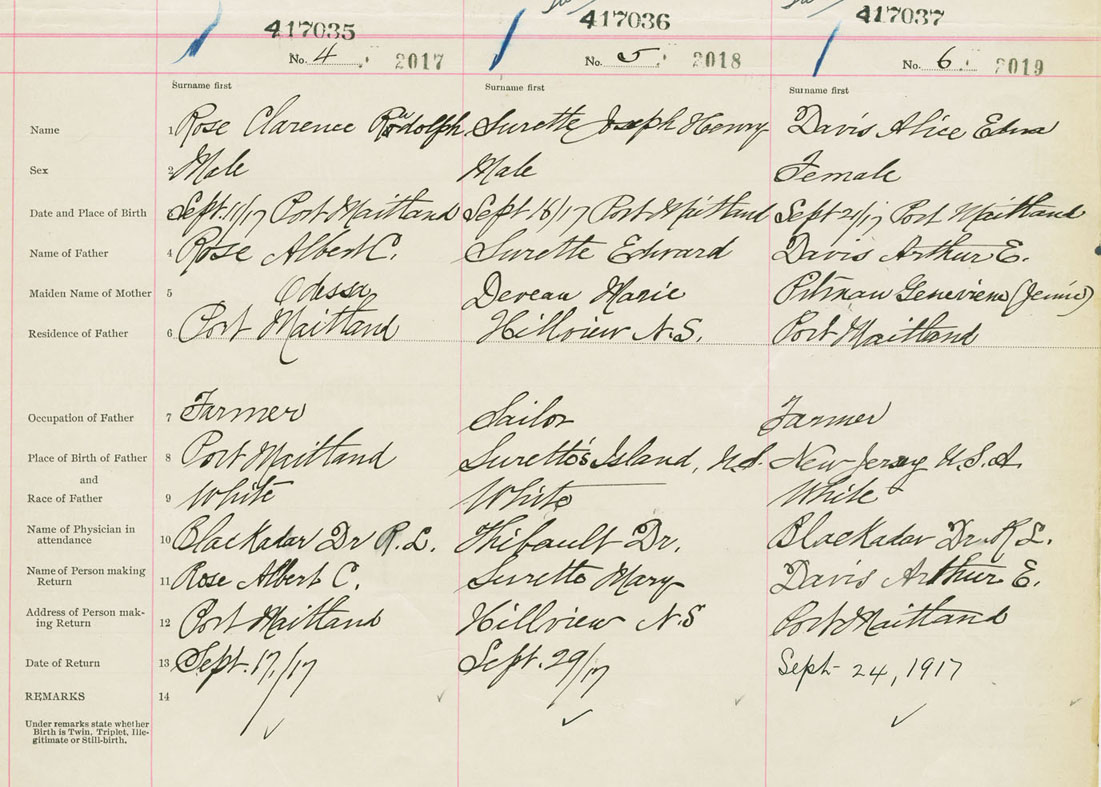 417035 417036 417037
No. 4 2017 No. 5 2018 No. 6 2019
Surname first Surname first Surname first
Name 1 Rose Clarence Rudolph Surette Joseph Henry Davis Alice Edna
Sex 2 Male Male Female
Date and Place of Birth Sept. 11/17 Port Maitland Sept 18/17 Port Maitland Sept 20/17 Port Maitland
Name of Father 4 Rose Albert C. Surette Edward Davis Arthur E.
Maiden Name of Mother 5 Odessa Deveau Marie Pitman Genevieve (Jennie)
Residence of Father 6 Port Maitland Hillview N.S. Port Maitland
Occupation of Father 7 Farmer Sailor Farmer
Place of Birth of Father 8 Port Maitland Surette's Island, N.S. New Jersey U.S.A
and
Race of Father 9 White White White
Name of Physician in
attendance 10 Blackadar Dr R. L. Thibault Dr. Blackadar Dr. R L.
Name of Person making
Return 11 Rose Albert C. Surette Mary Davis Arthur E.
Address of Person mak-
ing Return 12 Port Maitland Hillview N.S Port Maitland
Date of Return 13 Sept. 17,/17 Sept. 29/17 Sept- 24, 1917
REMARKS 14
Under remarks state whether
Birth is Twin, Triplet, Ille-
gitimate or Still-birth.